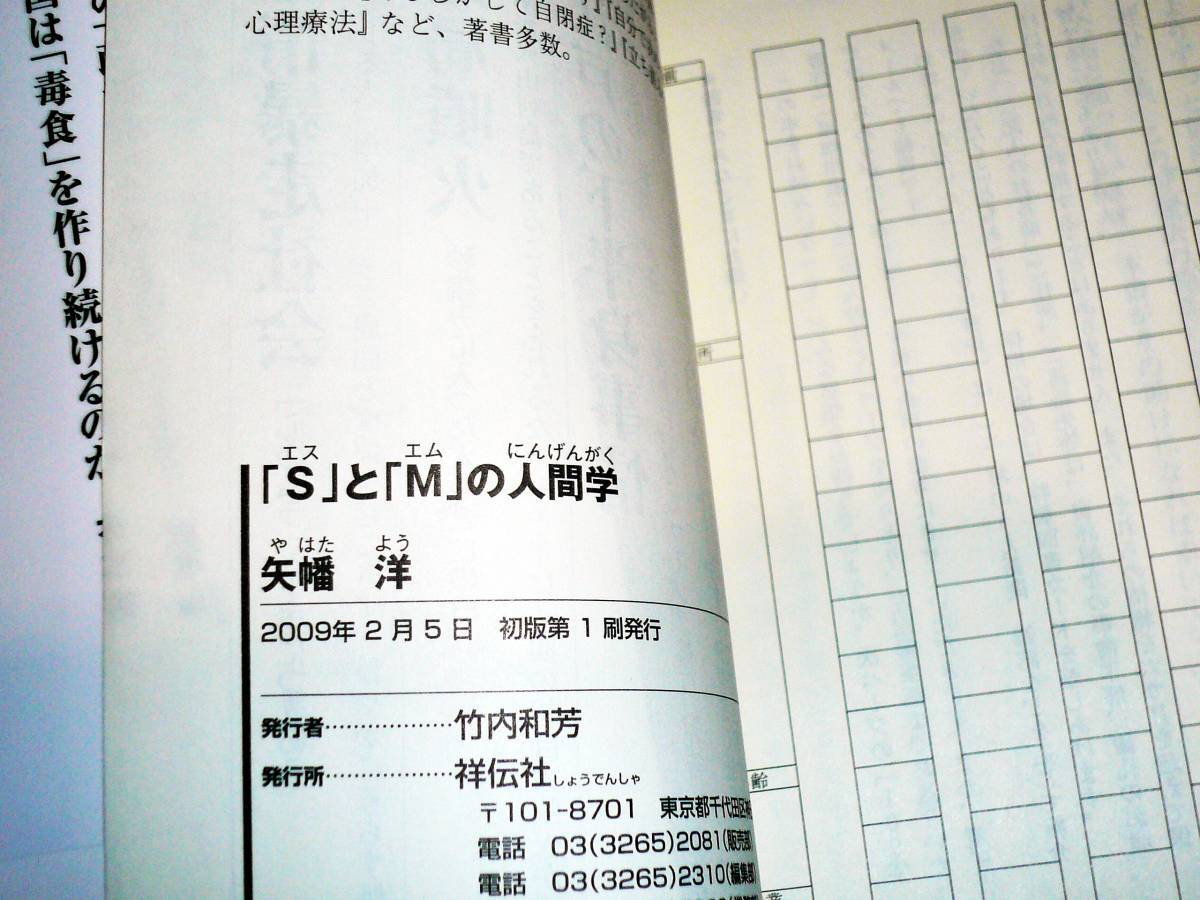 国は「毒食」を作り続けるのか
して自閉症?』『自分で
心理療法』など、著書多数。
エス エム にんげんがく
「S」と「M」の人間学
や はた よう
矢幡 洋
2009年2月5日 初版第1刷発行
発行者………………竹内和芳
発行所………………祥伝社しょうでんしゃ
〒101-8701 東京都千代田区神
電話 03(3265)2081(販売部)
電話 03(3265)2310(編集部)
所
齢
業